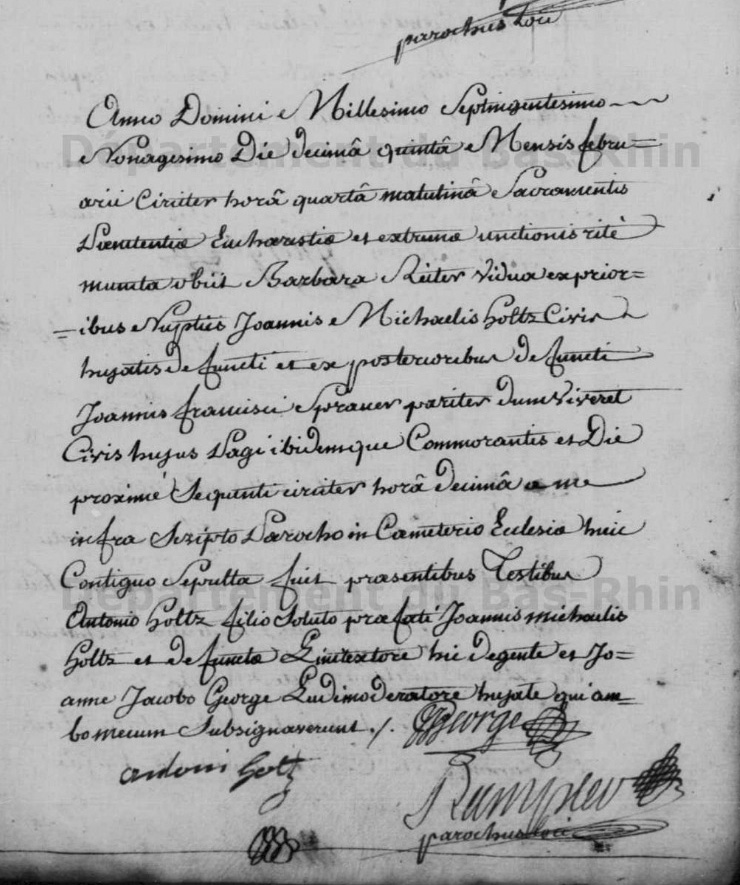 parochus loci
Anno Domini Millesimo Septingentesimo
Nonagesimo Die decimâ quintâ Mensis febru=
arii Circiter horâ quartâ matutinâ Sacramentis
Pœnitentiæ Eucharistiæ et extremæ unctionis ritè
munita obiit Barbara Reiter Vidua ex prior=
=ibus Nuptiis Joannis Michaelis holtz Civis
hujatis defuncti et ex posterioribus defuncti
Joannis francisci Sprauer pariter dum Viveret
Civis hujus Pagi ibidemque Commorantis et Die
proximè Sequenti circiter horâ decimâ a me
infra Scripto Parocho in Cœmeterio Ecclesiæ huic
Contiguo Sepulta fuit præsentibus Testibus
Antonio holtz filio Soluto præfati Joannis michaelis
holtz et defunctæ Linitextore hic degente et Jo=
anne Jacobo George Ludimoderatore hujate qui am=
bo mecum Subsignaverunt ./. George
antoni Holtz
parochus loci
Département du Bas-Rhin
Département du Bas-Rhin